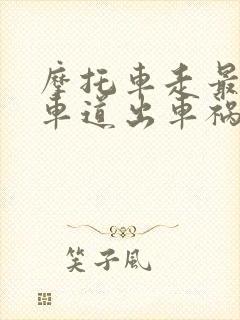 摩托車走最
車道出車禍
笑子風